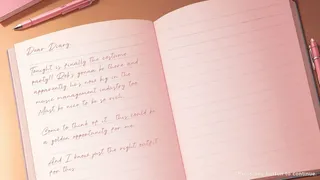 Dear Diary,
Tonight is finally the costume
party!! Rob's gonna be there and
apparently he's now big in the
music management industry too.
Must be nice to be so rich.
Come to think of it, this could be
a golden opportunity for me.
And I know just the right outfit
for this.
to continue